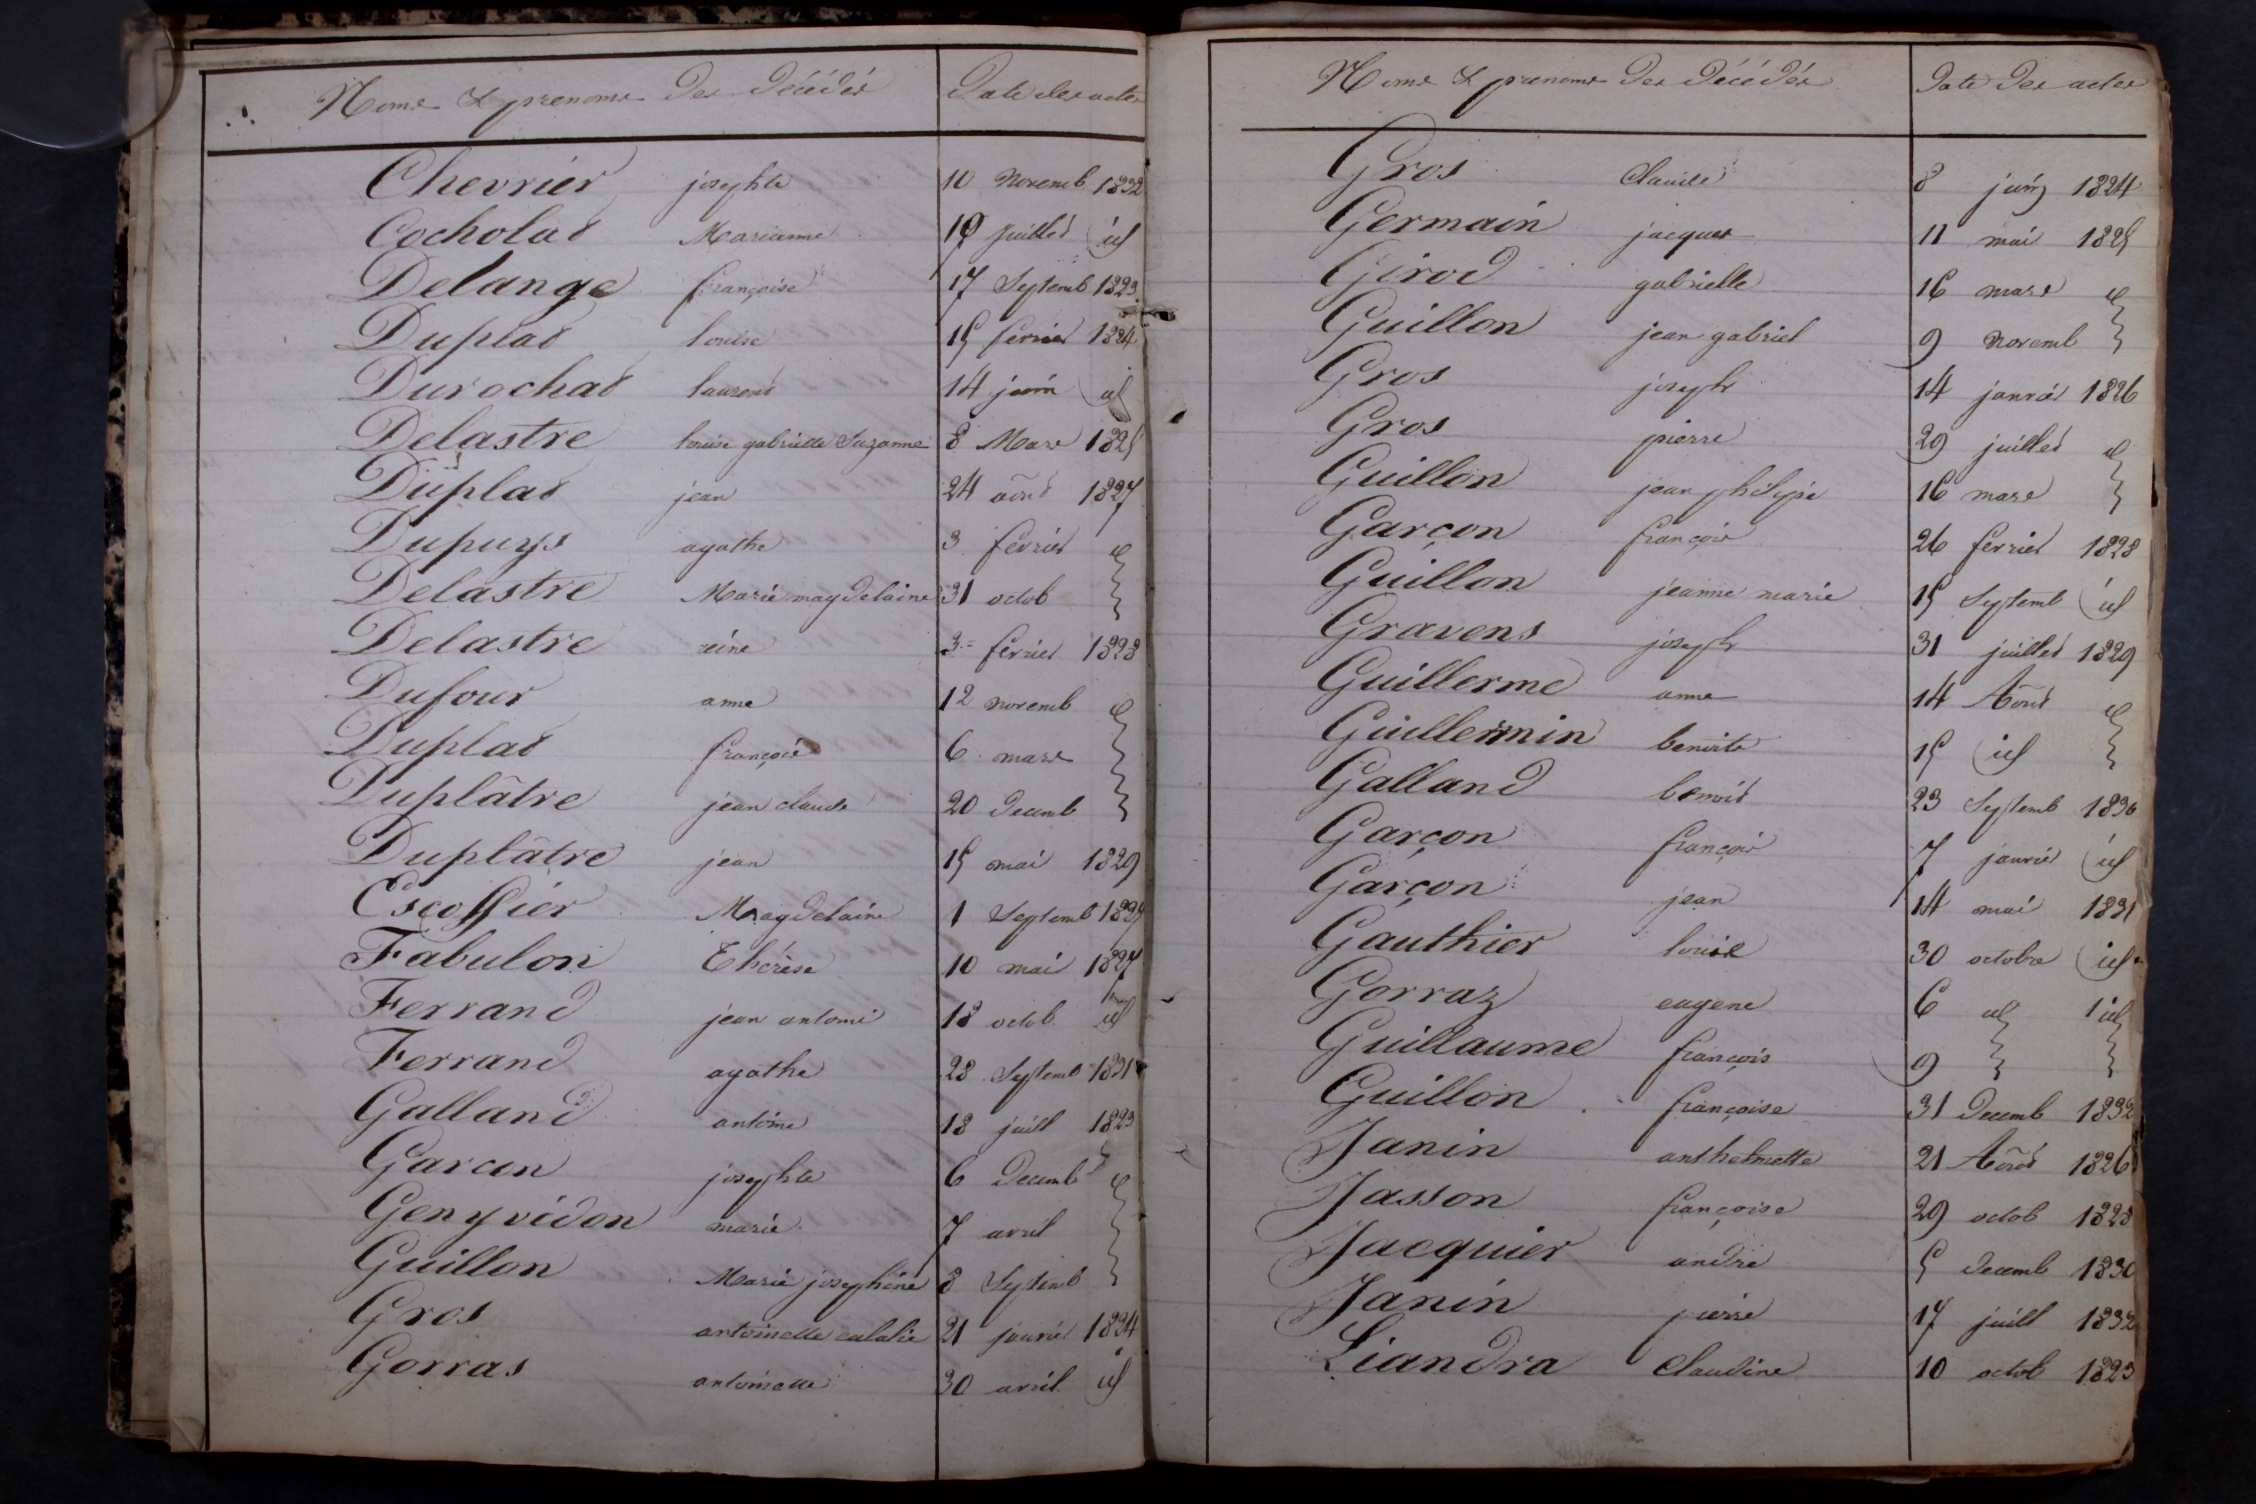 Noms & prenoms des décédés Date des actes
Chevrier josephte 10 Novemb 1832
Cocholat Marianne 19 juillet id
Delange françoise 17 Septemb 1823
Duplat louise 15 fevrier 1824
Durochat laurent 14 juin id
Delastre louise gabrielle Suzanne 8 Mars 1825
Duplat jean 24 aout 1827
Dupuys agathe 3 fevrier id
Delastre Marie magdelaine 31 octob
Delastre reine 3 fevrier 1828
Dufour anne 12 novemb id
Duplat françois 6 mars
Duplâtre jean claude 20 decemb
Duplâtre jean 15 mai 1829
Escoffier Magdelaine 1 Septemb
Fabulon Thérèse 10 mai 1827
Ferrand jean antoine 18 octob id
Ferrand agathe 28 Septemb 1831
Galland antoine 18 juill 1823
Garcin josephte 6 Decemb id
Genyvidon marie 7 avril
Guillon Marie josephine 8 Septemb
Gros antoinette eulalie 21 janvier 1824
Gorras antoinette 30 avril id
Noms & prenoms des décédés Date des actes
Gros Claude 8 juin 1824
Germain jacques 11 mai 1825
Girod gabrielle 16 mars id
Guillon jean gabriel 9 Novemb
Gros joseph 14 janvier 1826
Gros pierre 29 juillet id
Guillon jean philippe 16 mars
Garçon françois 26 fevrier 1828
Guillon jeanne marie 15 Septemb id
Gravens joseph 31 juillet 1829
Guillerme anne 14 Aout id
Guillermin benoite 15 id
Galland benoit 23 Septemb 1830
Garçon françois 7 janvier id
Garçon jean 14 mai 1831
Gauthier louise 30 octobre id
Gorraz eugene 6 id id
Guillaume françois 9
Guillon françoise 31 Decemb 1832
Janin anthelmette 21 Aout 1826
Jasson françoise 29 octob 1828
Jacquier andre 5 decemb 1830
Janin pierre 17 juill 1832
Liandra Claudine 10 octob 1823